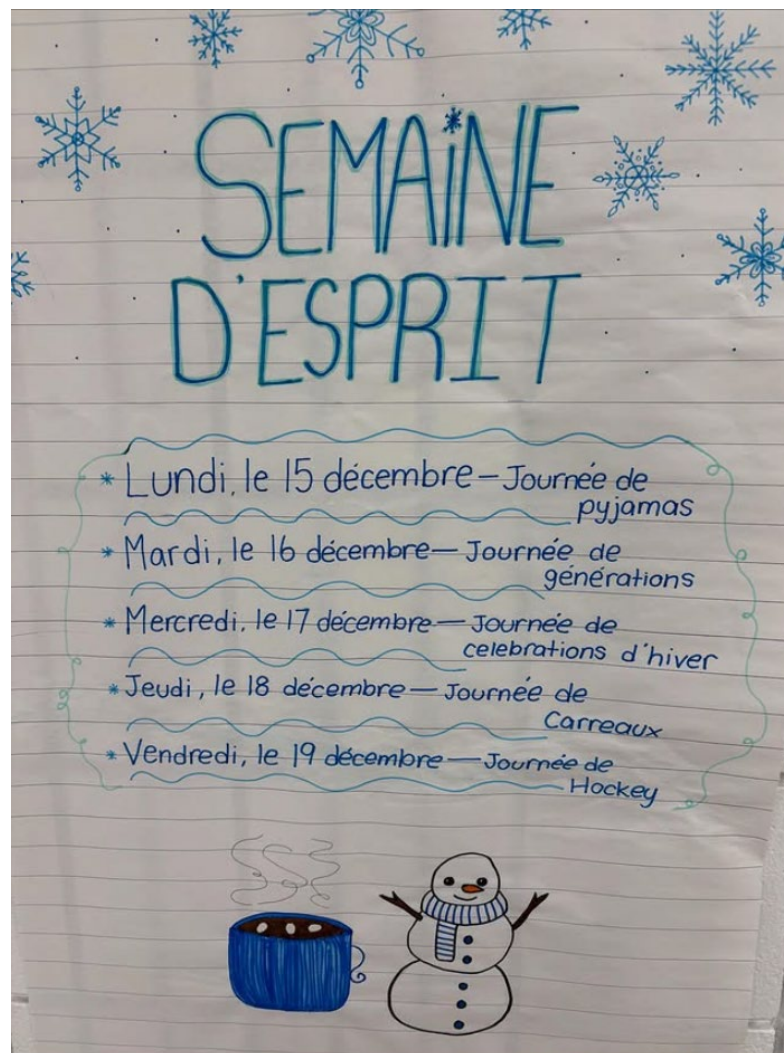 SEMAiNE
D'ESPRIT
* Lundi, le 15 décembre – Journée de
pyjamas
* Mardi, le 16 décembre — Journée de
générations
* Mercredi, le 17 décembre — Journée de
celebrations d'hiver
* Jeudi, le 18 décembre — Journée de
Carreaux
* Vendredi, le 19 décembre — Journée de
Hockey